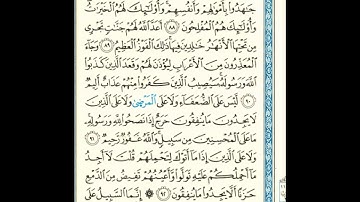 جَٰهَدُوا۟ بِأَمْوَٰلِهِمْ وَأَنفُسِهِمْ وَأُو۟لَٰٓئِكَ لَهُمُ ٱلْخَيْرَٰتُ
وَأُو۟لَٰٓئِكَ هُمُ ٱلْمُفْلِحُونَ ٨٨ أَعَدَّ ٱللَّهُ لَهُمْ جَنَّٰتٍ تَجْرِى
مِن تَحْتِهَا ٱلْأَنْهَٰرُ خَٰلِدِينَ فِيهَا ذَٰلِكَ ٱلْفَوْزُ ٱلْعَظِيمُ ٨٩ وَجَآءَ
ٱلْمُعَذِّرُونَ مِنَ ٱلْأَعْرَابِ لِيُؤْذَنَ لَهُمْ وَقَعَدَ ٱلَّذِينَ كَذَبُوا۟
ٱللَّهَ وَرَسُولَهُۥ سَيُصِيبُ ٱلَّذِينَ كَفَرُوا۟ مِنْهُمْ عَذَابٌ أَلِيمٌ
٩٠ لَّيْسَ عَلَى ٱلضُّعَفَآءِ وَلَا عَلَى ٱلْمَرْضَىٰ وَلَا عَلَى ٱلَّذِينَ
لَا يَجِدُونَ مَا يُنفِقُونَ حَرَجٌ إِذَا نَصَحُوا۟ لِلَّهِ وَرَسُولِهِۦ
مَا عَلَى ٱلْمُحْسِنِينَ مِن سَبِيلٍ وَٱللَّهُ غَفُورٌ رَّحِيمٌ ٩١
وَلَا عَلَى ٱلَّذِينَ إِذَا مَآ أَتَوْكَ لِتَحْمِلَهُمْ قُلْتَ لَآ أَجِدُ
مَآ أَحْمِلُكُمْ عَلَيْهِ تَوَلَّوا۟ وَّأَعْيُنُهُمْ تَفِيضُ مِنَ ٱلدَّمْعِ
حَزَنًا أَلَّا يَجِدُوا۟ مَا يُنفِقُونَ ٩٢ ۞ إِنَّمَا ٱلسَّبِيلُ عَلَى